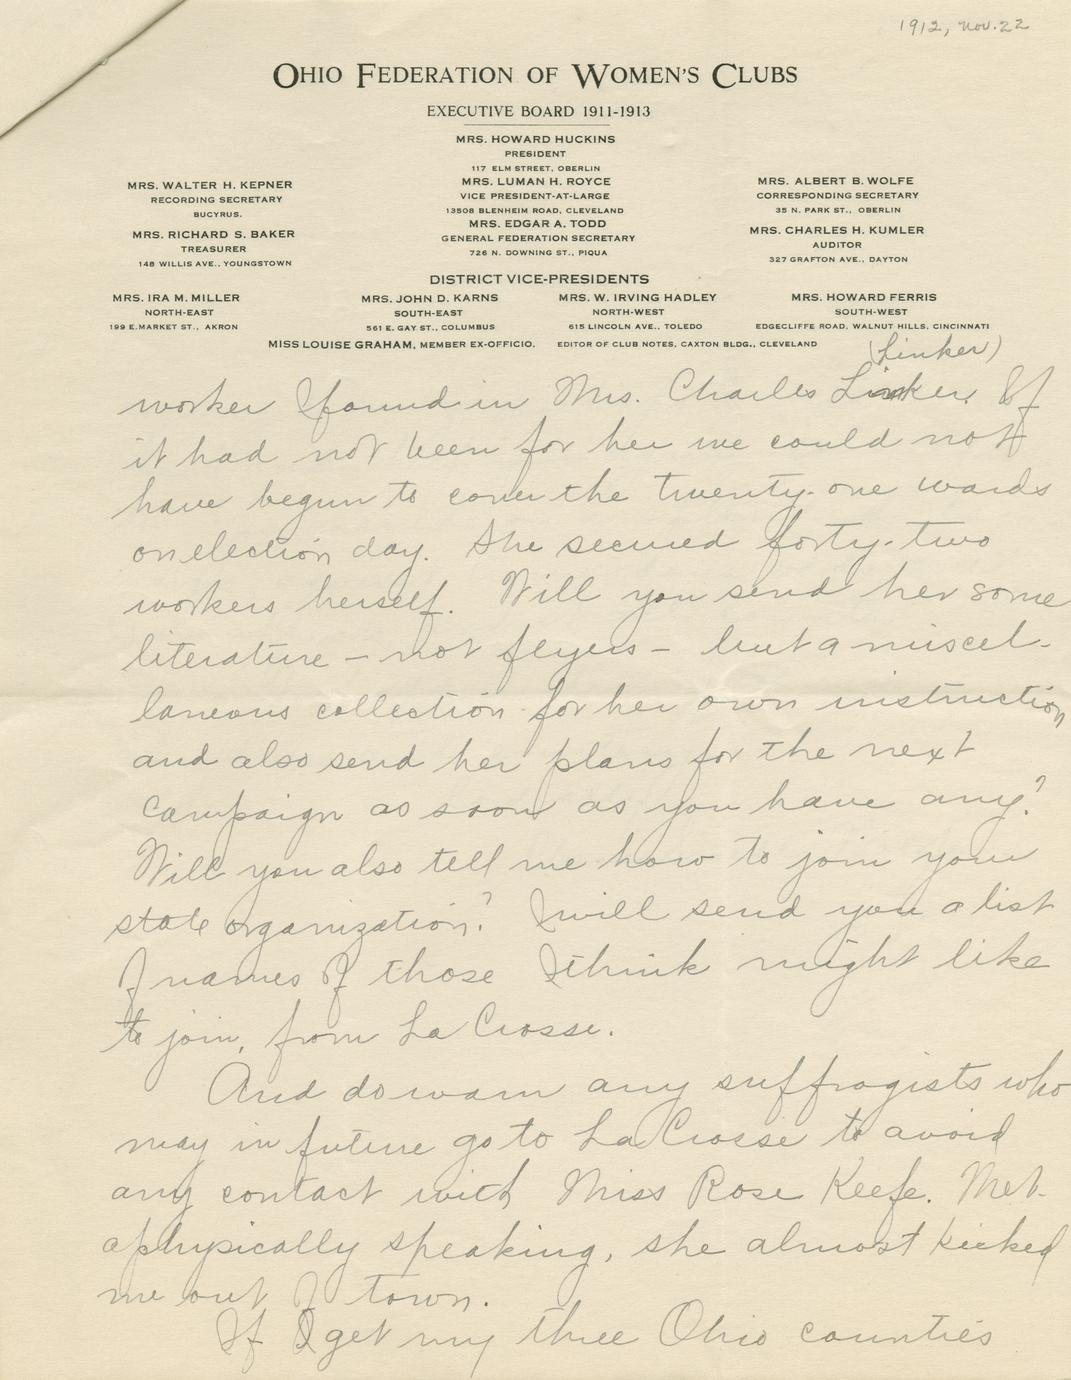 1912, Nov. 22
OHIO FEDERATION OF WOMEN'S CLUBS
EXECUTIVE BOARD 1911-1913
MRS. HOWARD HUCKINS
PRESIDENT
117 ELM STREET, OBERLIN
MRS. LUMAN H. ROYCE
VICE PRESIDENT-AT-LARGE
13508 BLENHEIM ROAD, CLEVELAND
MRS. EDGAR A. TODD
GENERAL FEDERATION SECRETARY
726 N. DOWNING ST., PIQUA
MRS. WALTER H. KEPNER
RECORDING SECRETARY
BUCYRUS.
MRS. RICHARD S. BAKER
TREASURER
148 WILLIS AVE., YOUNGSTOWN
MRS. ALBERT B. WOLFE
CORRESPONDING SECRETARY
35 N. PARK ST., OBERLIN
MRS. CHARLES H. KUMLER
AUDITOR
327 GRAFTON AVE., DAYTON
DISTRICT VICE-PRESIDENTS
MRS. IRA M. MILLER
NORTH-EAST
199 E. MARKET ST., AKRON
MRS. JOHN D. KARNS
SOUTH-EAST
561 E. GAY ST., COLUMBUS
MRS. W. IRVING HADLEY
NORTH-WEST
615 LINCOLN AVE., TOLEDO
MRS. HOWARD FERRIS
SOUTH-WEST
EDGECLIFFE ROAD, WALNUT HILLS, CINCINNATI
MISS LOUISE GRAHAM, MEMBER EX-OFFICIO. EDITOR OF CLUB NOTES, CAXTON BLDG., CLEVELAND
(Linker)
worker I found in Mrs. Charles Linker. If
it had not been for her we could not
have begun to cover the twenty-one wards
on election day. She secured forty-two
workers herself. Will you send her some
literature – not flyers – but a miscel-
laneous collection for her own instruction
and also send her plans for the next
campaign as soon as you have any?
Will you also tell me how to join your
state organization? I will send you a list
of names of those I think might like
to join, from La Crosse.
And do warn any suffragists who
may in future go to La Crosse to avoid
any contact with Miss Rose Keefe. Met-
aphysically speaking, she almost kicked
me out of town.
If I get my three Ohio counties